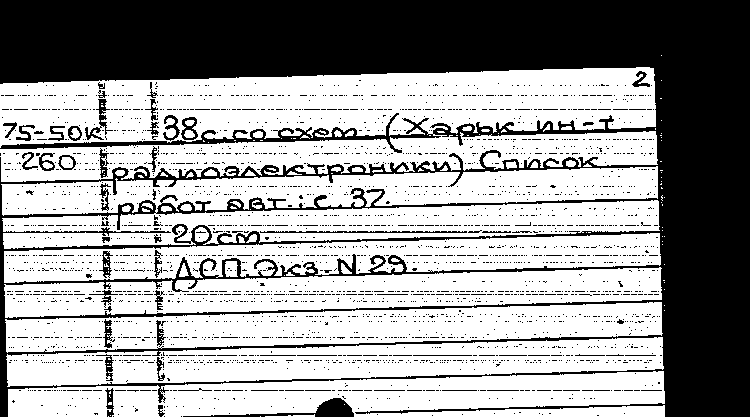 2
75-50к 38с. со схем. (Харьк ин-т
260 радиоэлектроники) Список
работ авт.: с. 37.
20 см.
ДСП. Экз. N. 29.